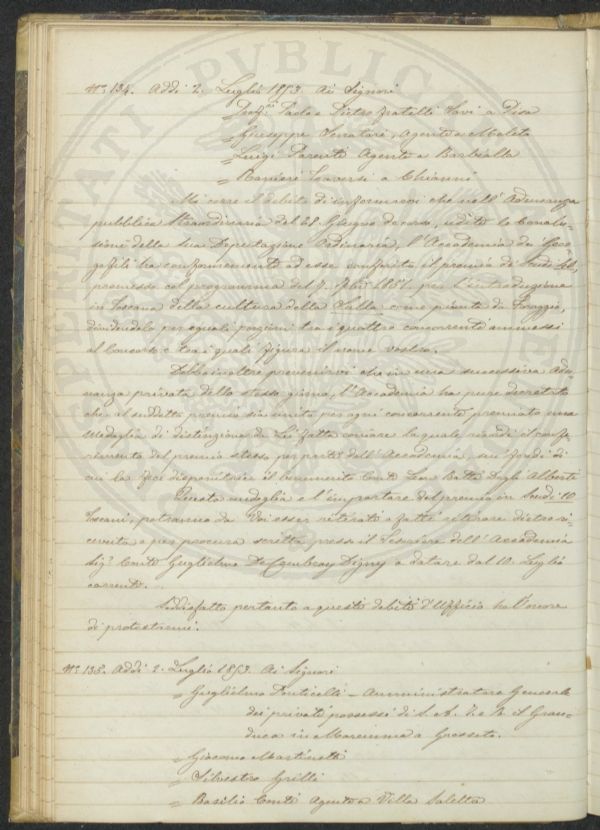 N.° 134. Addi 2. Luglio 1853. Ai Signori
Prof.ri Paolo e Pietro fratelli Savi a Pisa
" Giuseppe Agente a Meleto
" Luigi Parenti Agente a Barbialla
" Ranieri a Chianni
Mi corre il debito di informarvi che nell' Adunanza
pubblica straordinaria del 28. Giugno decorso, udite le Conclu-
sioni della sua Deputazione Ordinaria, l'Accademia dei Geor
gofili ha conformemente ad esse conferito il premio di Scudi 40,
promesso col programma del 7. 1851. per l'introduzione
in Toscana della cultura della Sulla come pianta da foraggio,
dividendolo per eguali porzioni tra i quattro concorrenti ammessi
al Concorso e tra i quali figura il nome vostro.
Debbo inoltre prevenirvi che in una successiva Adu-
nanza privata dello stesso giorno, l'Accademia ha pure decretato
che al suddetto premio sia unita per ogni concorrente premiato una
Medaglia di distinzione da Lei fatta coniare la quale ricordi il confe-
rimento del premio stesso per parte dell'Accademia, sui fondi di
cui la fece dispositrice il benemerito Conte Leon Batta Degli Alberti
Questa medaglia e l'importare del premio in Scudi 10
Toscani, potranno da Voi esser ritirati o fatti ritirare dietro ri-
cevuta o per procura scritta presso il Tesoriere dell'Accademia
Sig.r Conte Guglielmo De Cambray Digny a datare dal 10. Luglio
corrente.
Soddisfatto pertanto a questo debito d'Uffizio ho l'onore
di protestarmi.
N.° 135. Addi 2. Luglio 1853. Ai Signori
" Guglielmo Ponticelli - Amministratore Generale
dei privati possessi di S. A. I. e R. il Gran-
duca in Maremma a Grosseto.
" Giacomo Martinetti
" Silvestro Grilli
" Basilio Conti Agente a Villa Saletta